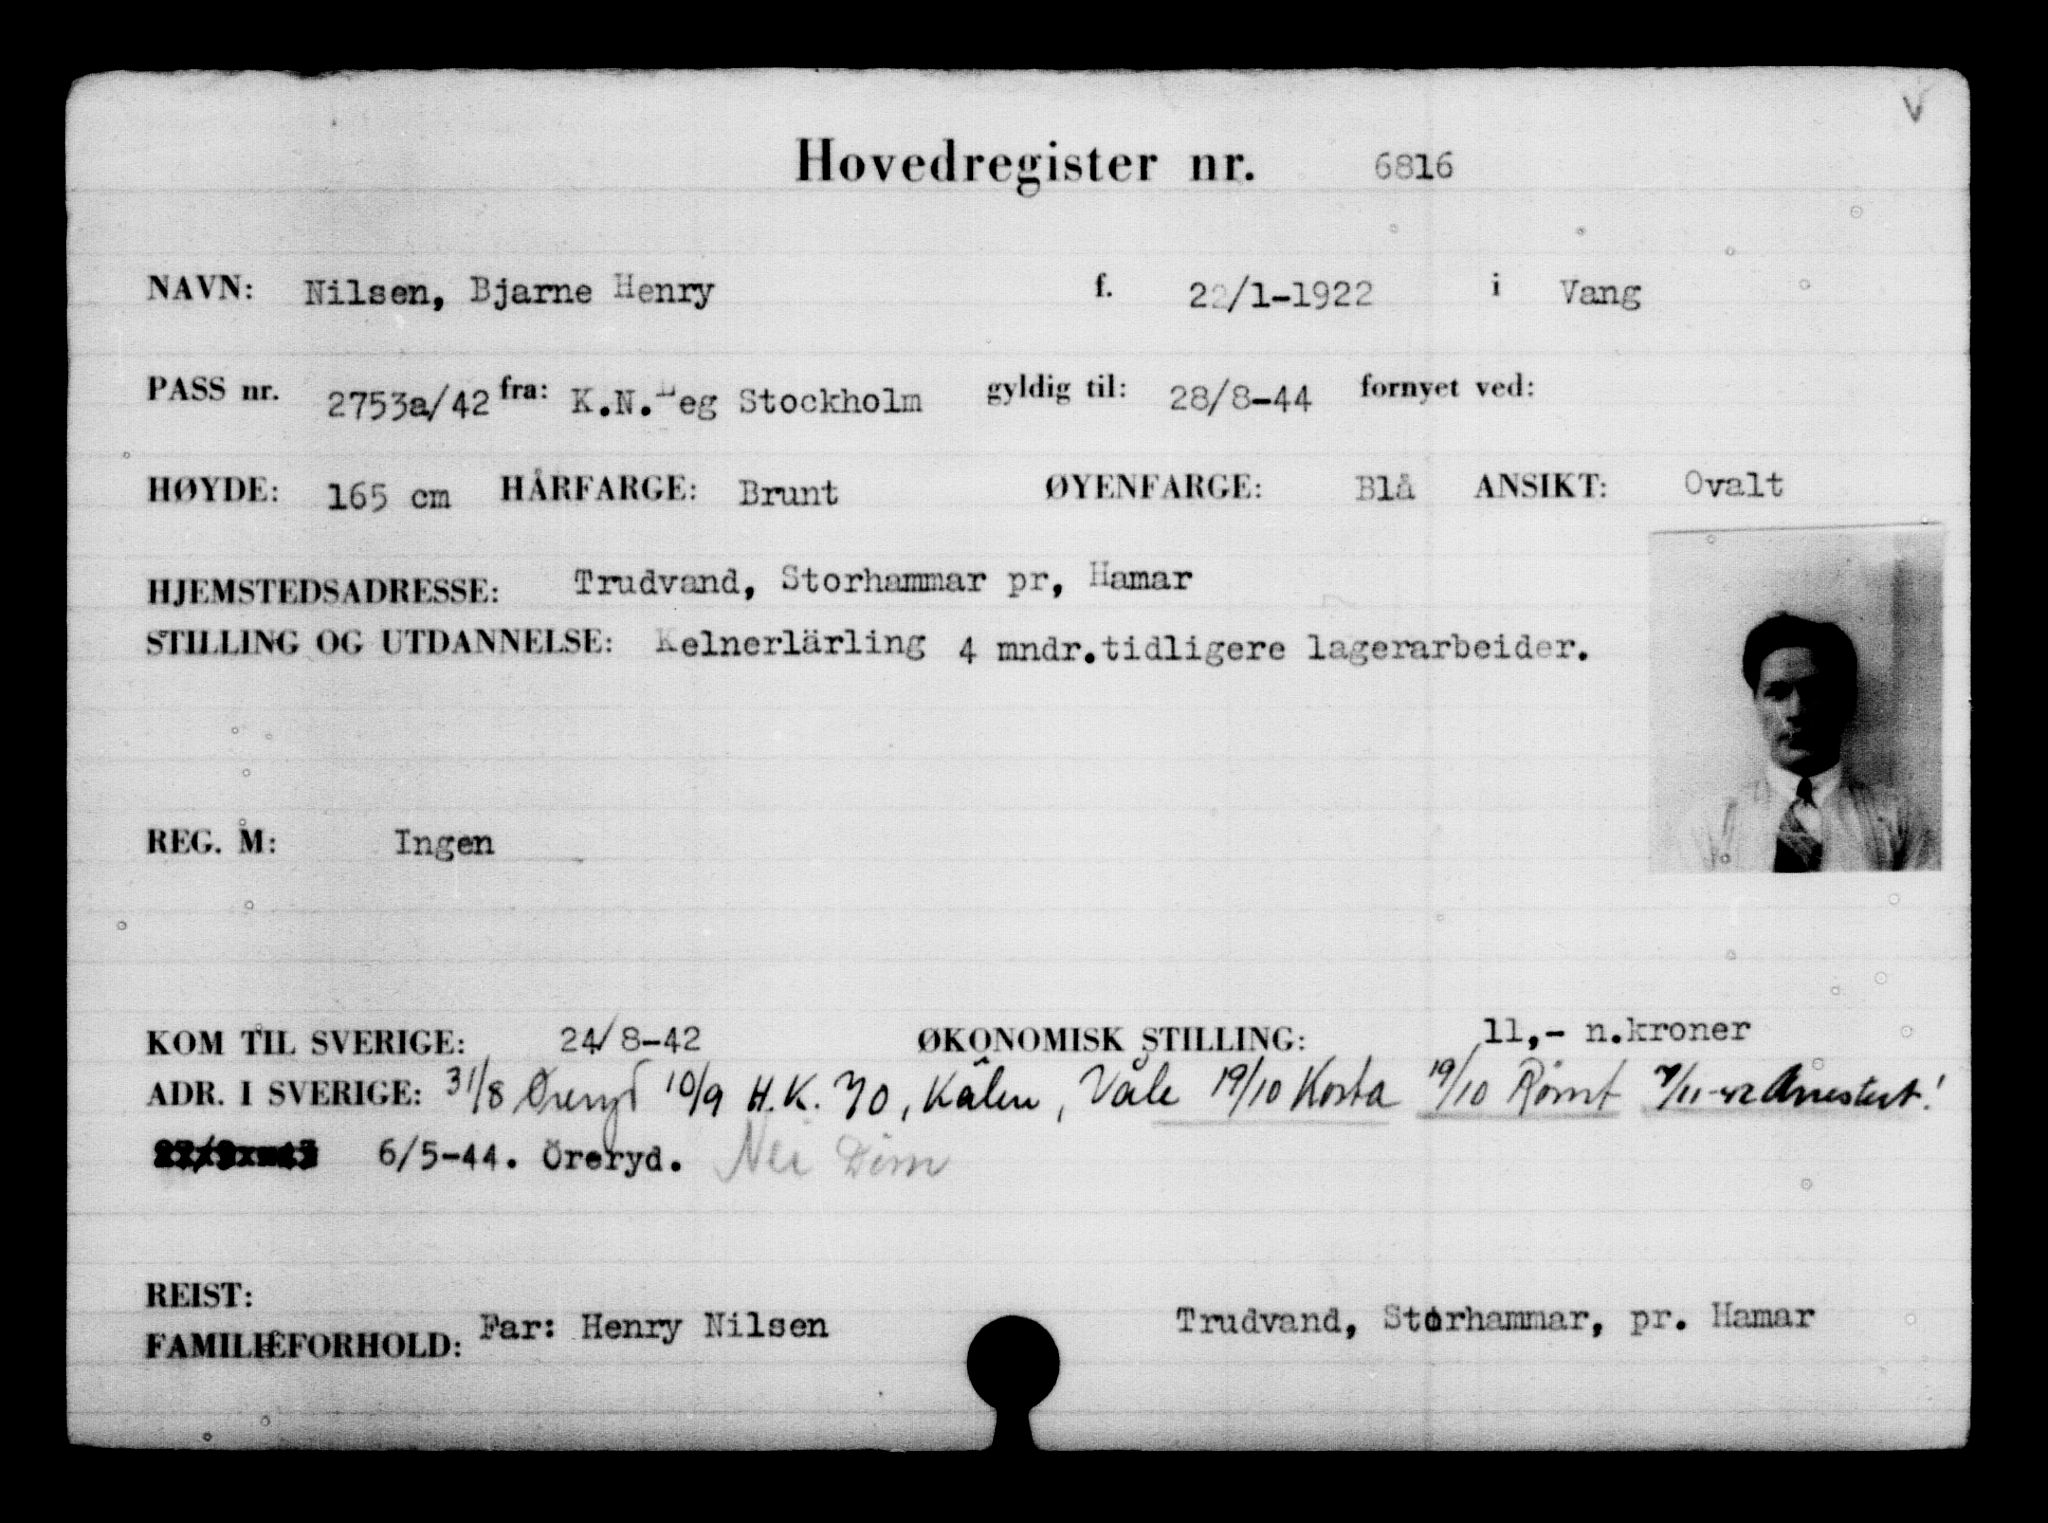 V
Hovedregister nr. 6816
NAVN: Nilsen, Bjarne Henry f. 22/1-1922 i Vang
PASS nr. 2753a/42 fra: K.N.Leg Stockholm gyldig til: 28/8-44 fornyet ved:
HØYDE: 165 cm HÅRFARGE: Brunt ØYENFARGE: Blå ANSIKT: Ovalt
HJEMSTEDSADRESSE: Trudvand, Storhammar pr, Hamar
STILLING OG UTDANNELSE: Kelnerlärling 4 mndr.tidligere lagerarbeider.
REG. M: Ingen
KOM TIL SVERIGE: 24/8-42 ØKONOMISK STILLING: 11,- n.kroner
ADR. I SVERIGE: 31/8 Øreryd 10/9 H.K. 70, Kålen, Våle 19/10 Kosta 19/10 Rømt 7/11-42 Arrestert!
6/5-44. Öreryd. Nei
REIST:
FAMILIEFORHOLD: Far: Henry Nilsen Trudvand, Storhammar, pr. Hamar